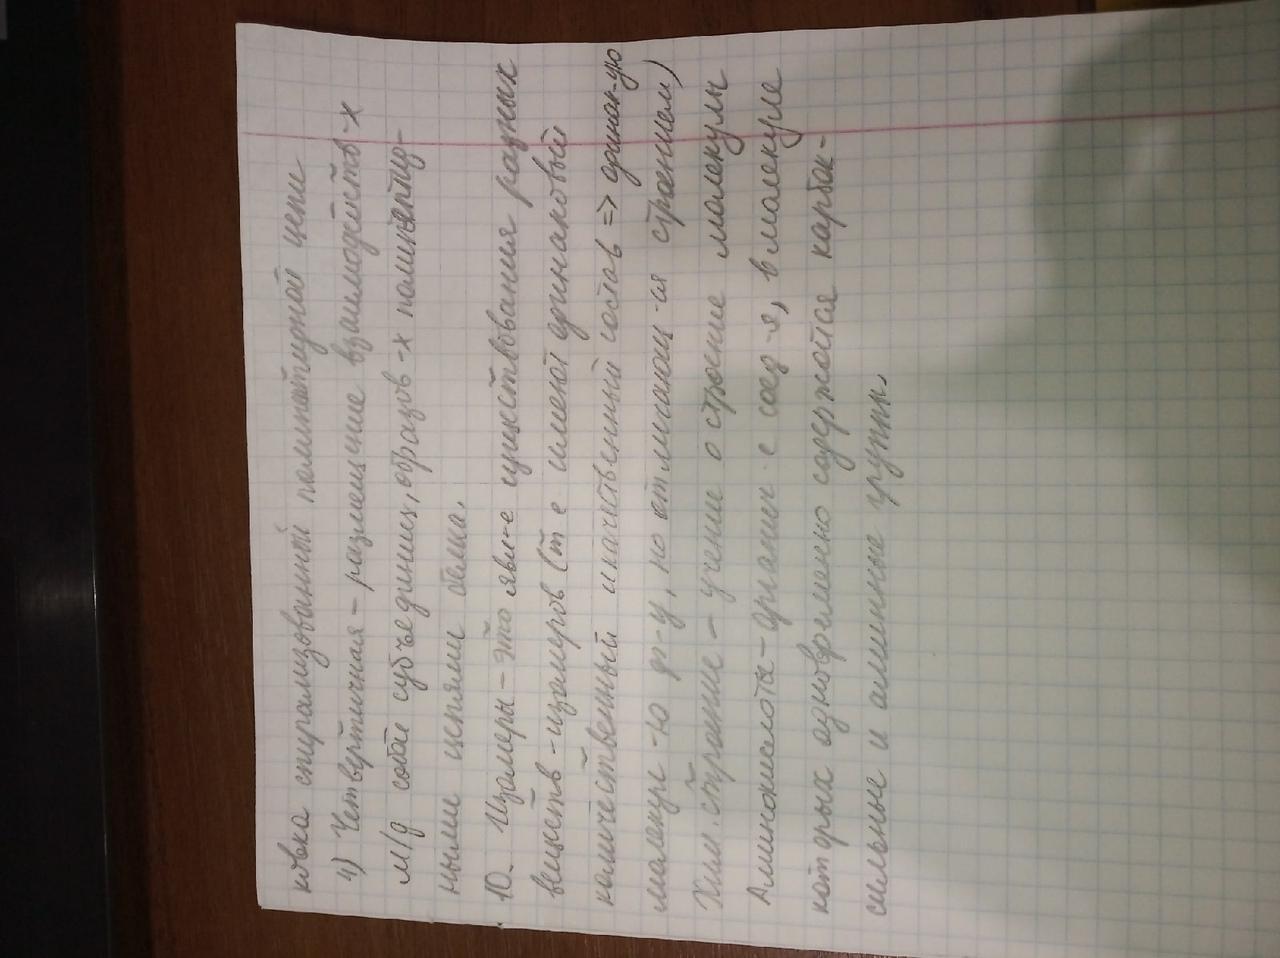 ковка спирализованной полипептидной цепи
4) Четвертичная - размещение взаимодейств-х
м/д собой субъединиц, образов-х полипептид-
ными цепями белка.
10. Изомеры - это явл-е существования разных
веществ - изомеров (т е имеют одинаковый
количественный и качественный состав => одинак-ую
молекул-ю ф-у, но отличающ-ся строением)
Хим. строение - учение о строение молекулы
Аминокислоты - органич-е соед-я, в молекуле
которых одновременно содержатся карбок-
сильные и аминные группы.